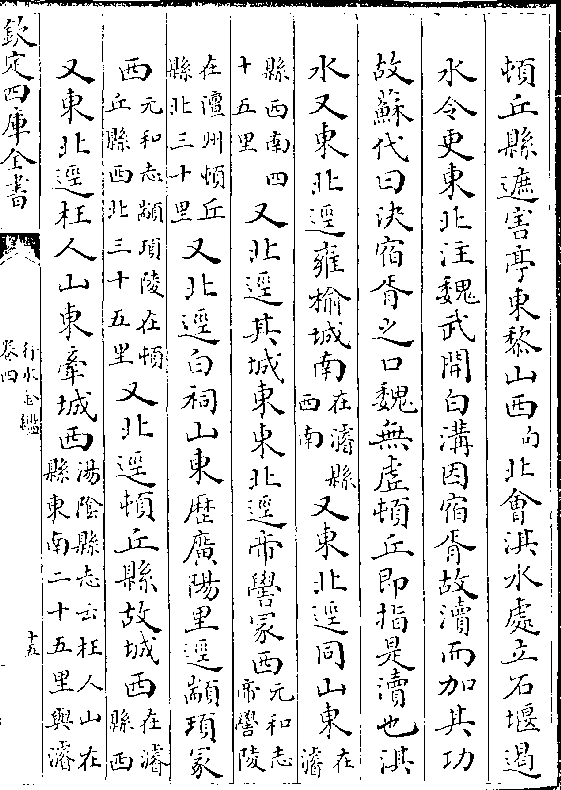 頓丘縣遮害亭東黎山西向北會淇水處立石堰遏
水令更東北注魏武開白溝因宿胥故瀆而加其功
故蘇代曰決宿胥之口魏無虛頓丘即指是瀆也淇
水又東北逕雍榆城南在濬縣西南又東北逕同山東在濬
縣西南四十五里又北逕其城東東北逕帝嚳冢西元和志帝嚳陵
在澶州頓丘縣北三十里又北逕白祠山東歷廣陽里逕顓頊冢
西元和志顓頊陵在頓丘縣西北三十五里又北逕頓丘縣故城西在濬縣西
又東北逕枉人山東牽城西湯陰縣志云枉人山在縣東南二十五里與濬
欽定四庫全書
行水金鑑
卷四
十五